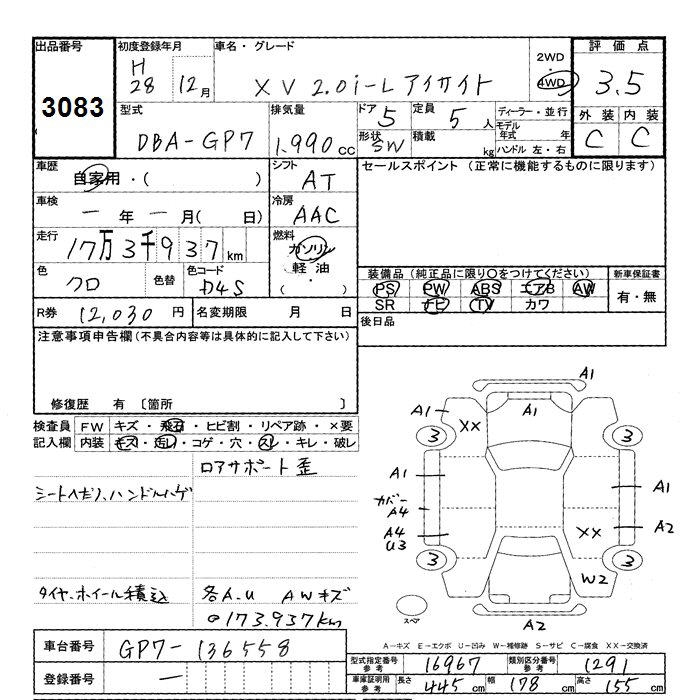 出品番号
3083
初度登録年月
H
28 12月
車名・グレード
XV 2.0i-L アイサイト
2WD
・
4WD
評価点
3.5
外装 内装
C C
型式
DBA-GP7
排気量
1,990 cc
ドア 5
形状 SW
定員 5 人
積載 kg
ディーラー・並行
モデル年式 年
ハンドル 左・右
車歴
自家用・( )
シフト
AT
セールスポイント (正常に機能するものに限ります)
車検
ー 年 ー 月( 日)
冷房
AAC
走行
17万3千937 km
燃料
ガソリン
軽油
( ・ )
色
クロ
色替
色コード
D4S
装備品 (純正品に限り○をつけてください)
PS PW ABS エアB AW
SR ナビ TV カワ
新車保証書
有・無
R券 12,030 円
名変期限 月 日
後日品
注意事項申告欄(不具合内容等は具体的に記入して下さい)
修復歴 有 〔箇所 〕
検査員記入欄
FW キズ・飛石・ヒビ割・リペア跡・×要
内装 キズ・汚レ・コゲ・穴・スレ・キレ・破レ
ロアサポート歪
シートヘタリ、ハンドルハゲ
タイヤ、ホイール積込
各A.U AWキズ
173.937km
A1
A1
A1
XX
3
3
A1
A1
カバー
A4
A4
U3
A2
XX
3
3
W2
スペア
A2
A-キズ E-エクボ U-凹み W-補修跡 S-サビ C-腐食 XX-交換済
車台番号
GP7-136558
登録番号
ー
型式指定番号
参考
16967
類別区分番号
参考
1291
車庫証明用
参考
長さ 445 cm 幅 178 cm 高さ 155 cm